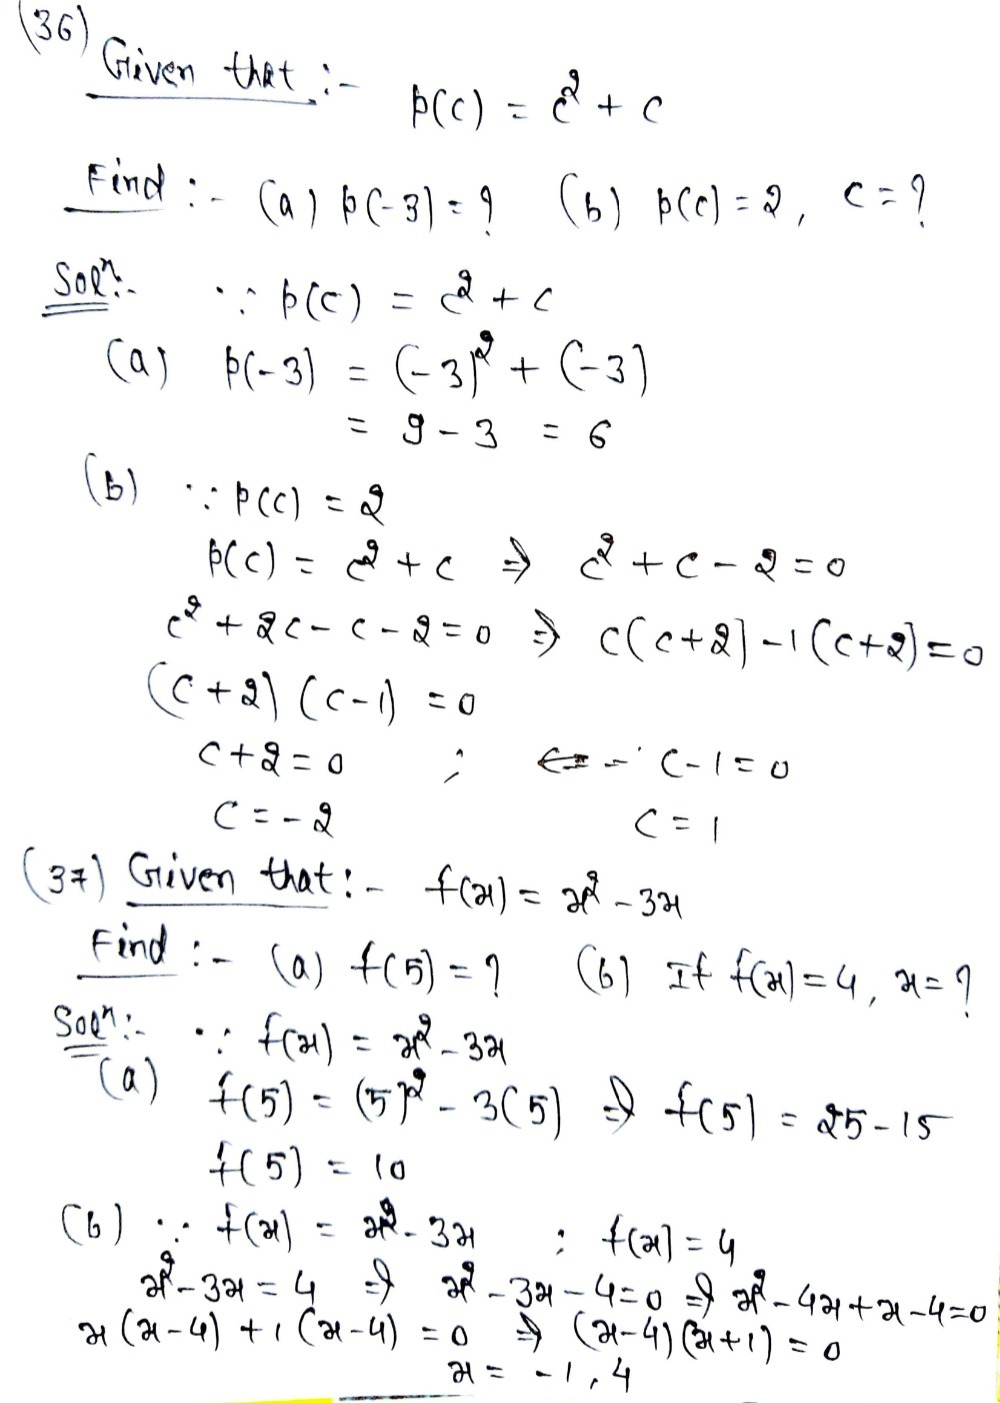 (36)
Given that :-
p(c) = c² + c
Find :- (a) p(-3) = ? (b) p(c) = 2, c = ?
Solⁿ:- ∵ p(c) = c² + c
(a) p(-3) = (-3)² + (-3)
= 9 - 3 = 6
(b) ∵ p(c) = 2
p(c) = c² + c ⇒ c² + c - 2 = 0
c² + 2c - c - 2 = 0 ⇒ c(c+2) - 1(c+2) = 0
(c+2) (c-1) = 0
c + 2 = 0 ; c - 1 = 0
c = -2 c = 1
(37) Given that :- f(x) = x² - 3x
Find :- (a) f(5) = ? (b) If f(x) = 4, x = ?
Solⁿ:- ∵ f(x) = x² - 3x
(a) f(5) = (5)² - 3(5) ⇒ f(5) = 25 - 15
f(5) = 10
(b) ∵ f(x) = x² - 3x ; f(x) = 4
x² - 3x = 4 ⇒ x² - 3x - 4 = 0 ⇒ x² - 4x + x - 4 = 0
x (x-4) + 1 (x-4) = 0 ⇒ (x-4) (x+1) = 0
x = -1, 4